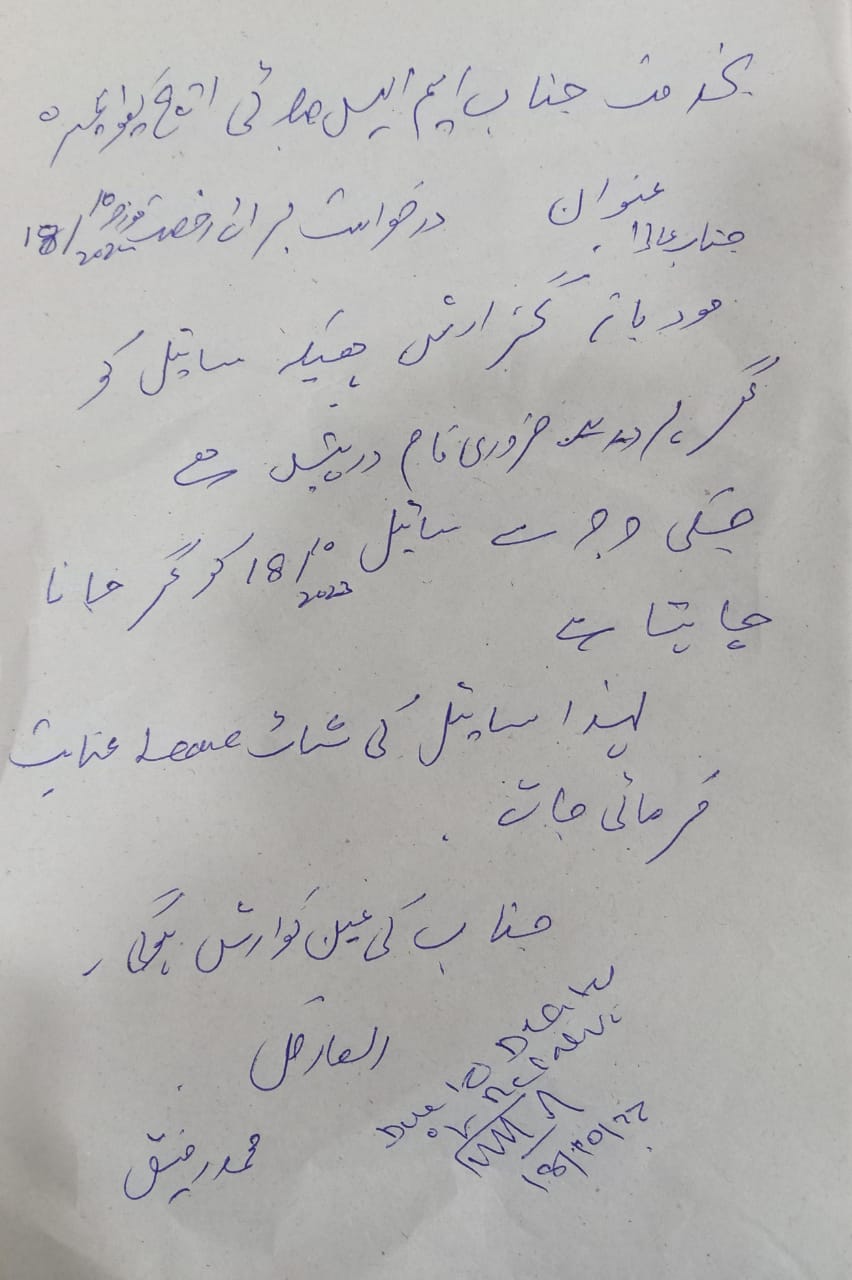 بخدمت جناب ایم ایس صاحب ٹی ایچ کیو
عنوان درخواست برائے رخصت مورخہ 18/10/2022
جناب عالیٰ
مودبانہ گزارش ہیکہ سائیل کو
گھر پر ضروری کام درپیش ہے
جسکی وجہ سے سائیل 18/10/2023 کو گھر جانا
چاہتا ہے
لہذا سائیل کی شارٹ Leave عنایت
فرمائی جائے
جناب کی عین نوازش ہوگی
العارض
محمد رفیق
Due to Death
of Relative
18/10/22